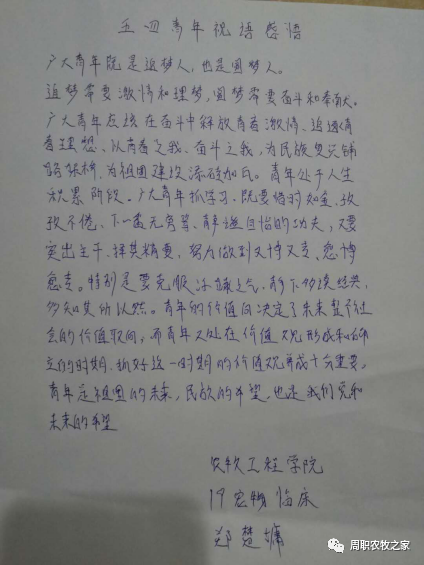 五四青年祝语感悟
广大青年既是追梦人，也是圆梦人。
追梦需要激情和理梦，圆梦需要奋斗和奉献。
广大青年应该在奋斗中释放青春激情、追逐青
春理想、以青春之我、奋斗之我，为民族复兴铺
路架桥，为祖国建设添砖加瓦。青年处于人生
积累阶段。广大青年抓学习，既要惜时如金、孜
孜不倦、下一番无旁骛、静谧自怡的功夫，又要
突出主干、择其精要，努力做到又博又专、愈博
愈专。特别是要克服浮躁之气，静下多读经典，
多知其所以然。青年的价值向决定了未来整个社
会的价值取向，而青年又处在价值观形成和确
立的时期，抓好这一时期的价值观养成十分重要，
青年是祖国的未来，民族的希望，也是我们党和
未来的希望
农牧工程学院
19宠物临床
郑楚
周职农牧之家